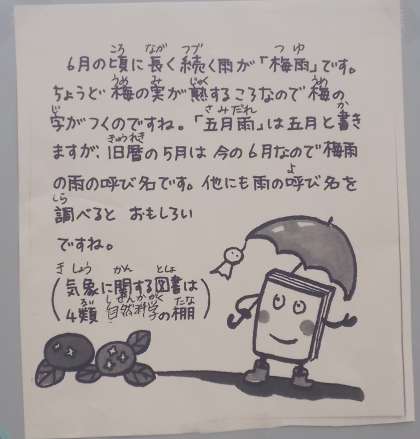 6月の頃に長く続く雨が「梅雨」です。
ちょうど梅の実が熟するころなので梅の
字がつくのですね。「五月雨」は五月と書き
ますが、旧暦の5月は今の6月なので梅雨
の雨の呼び名です。他にも雨の呼び名を
調べると おもしろい
ですね。
(気象に関する図書は
4類 自然科学の棚)